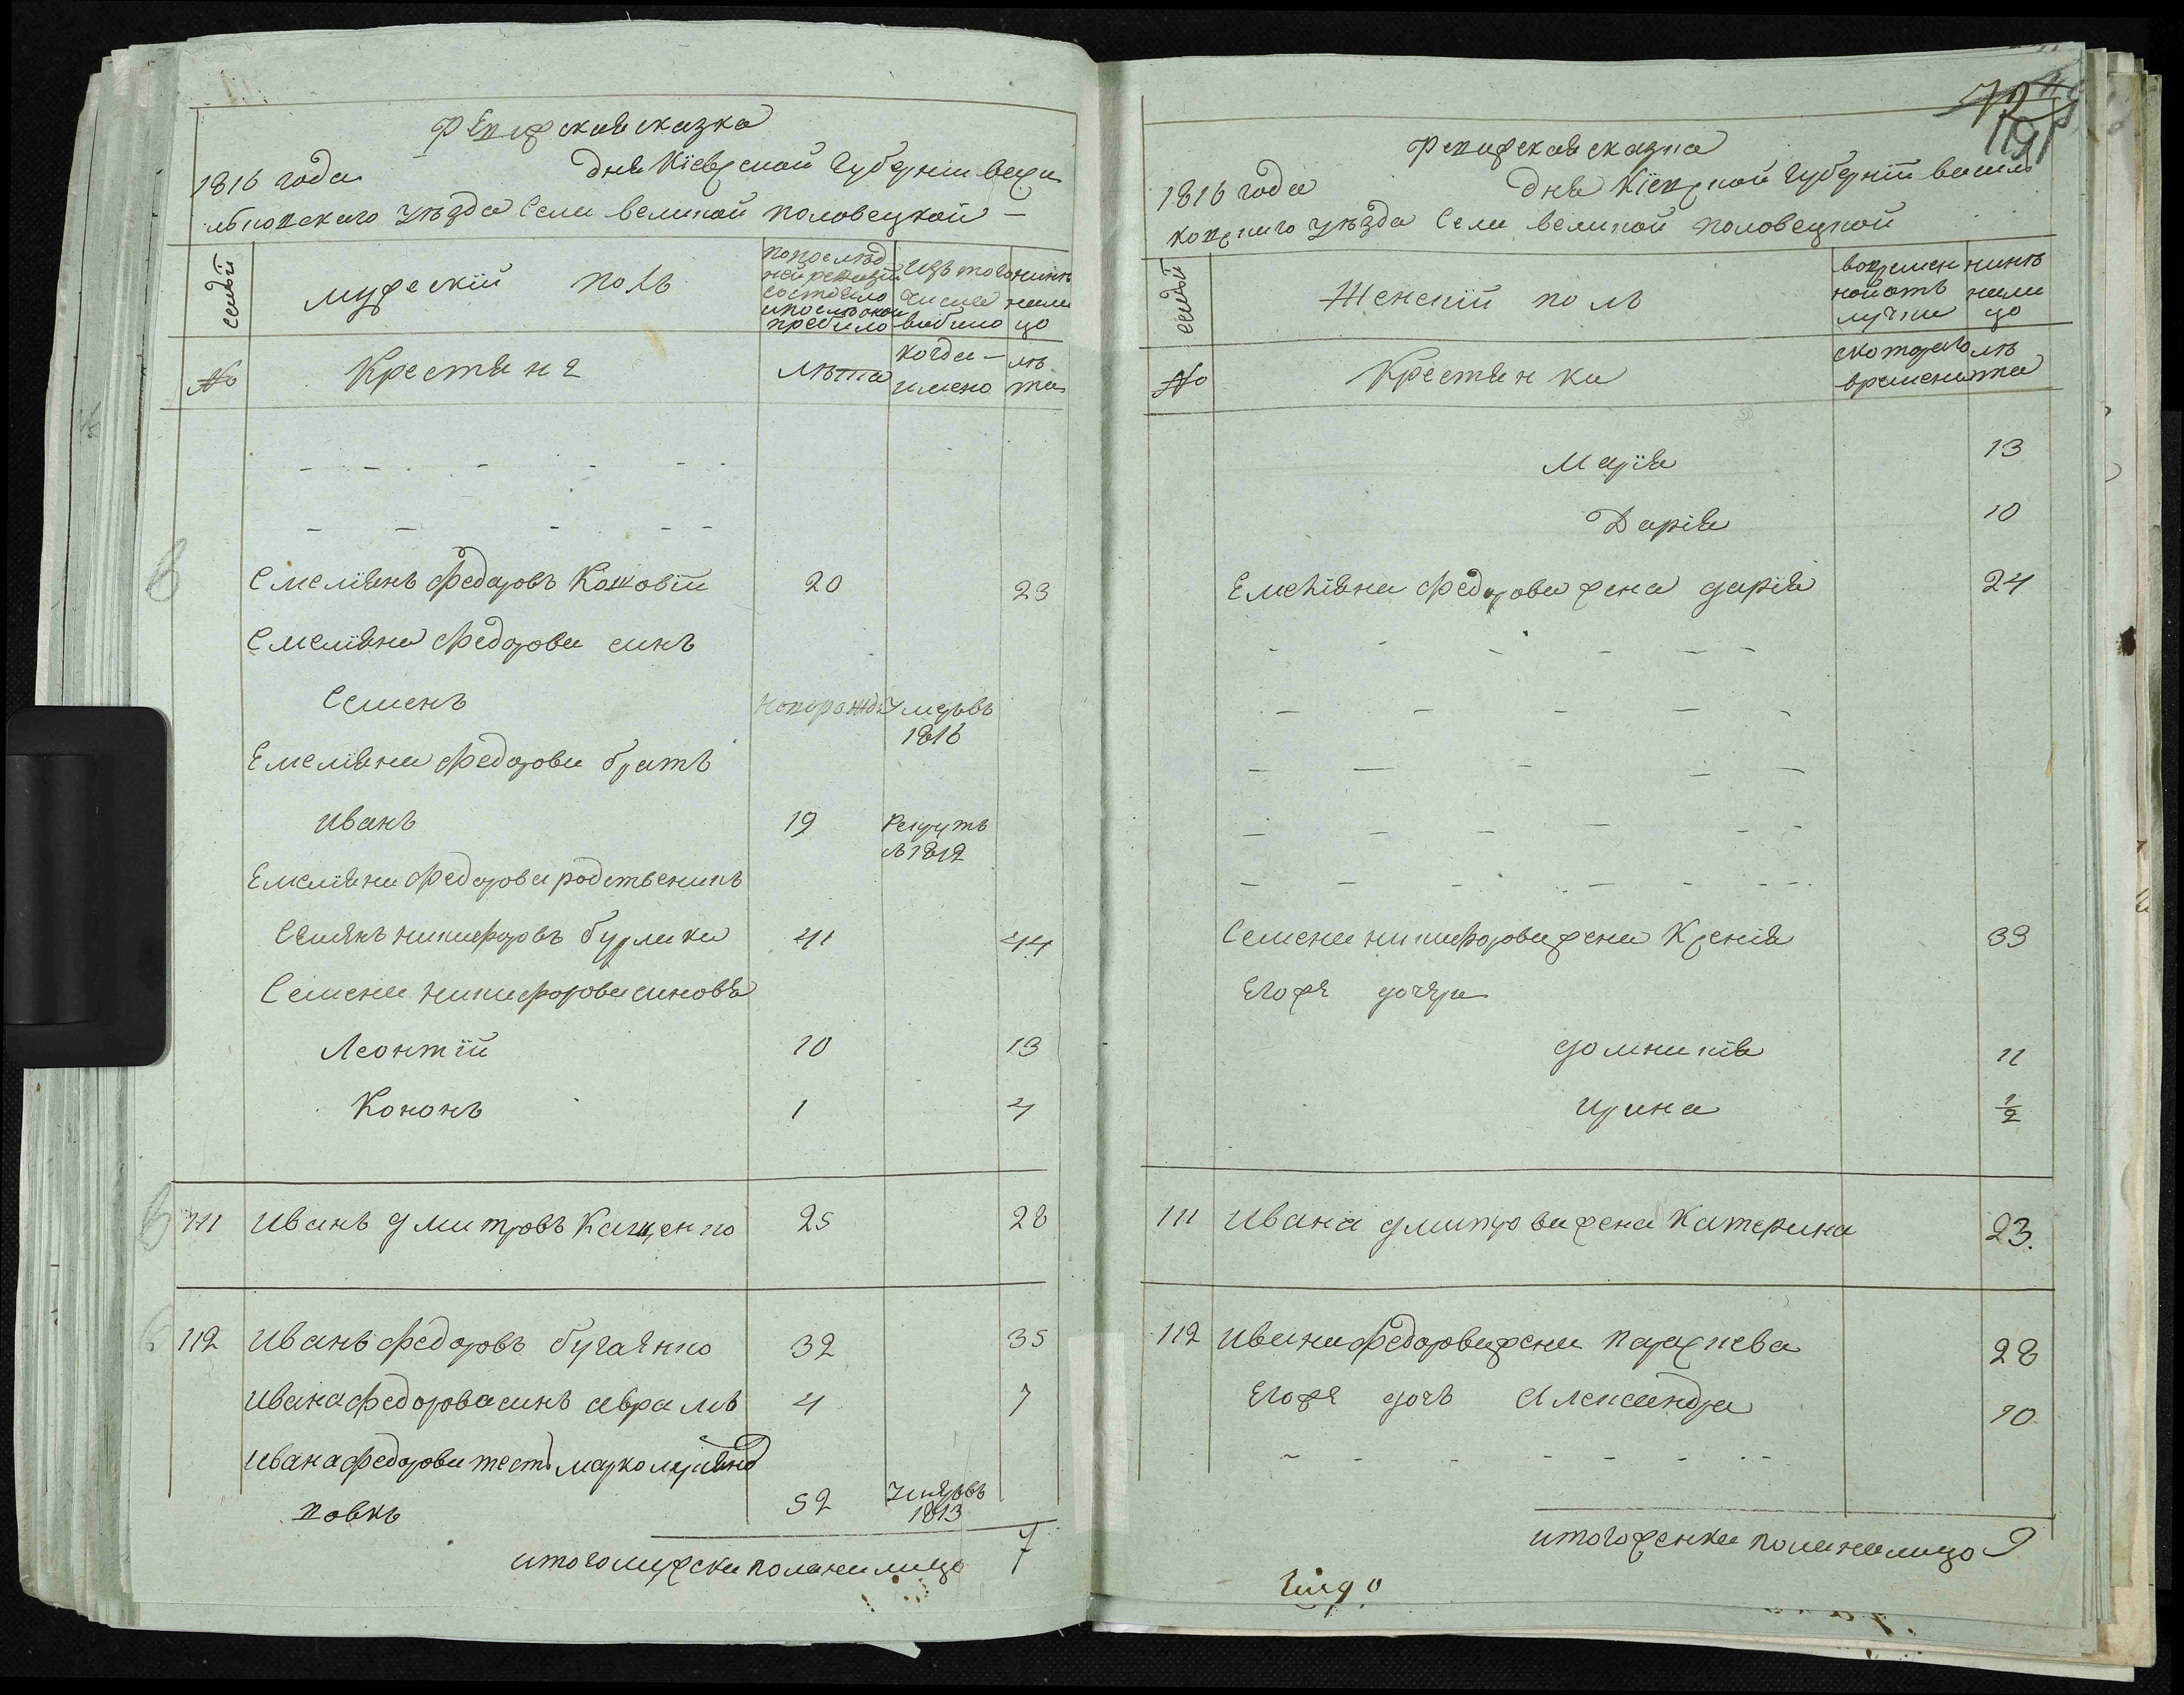 Ревизская сказка
1816 года дня Кіевской Губерніи васи
льковского уезда Села великой половецкой –
семьи
мужескій полъ
по послед
ней ревизіи
состояло
и после оной
прибило
Изъ того
числа
выбило
нине
нали
цо
№
Крестяне
лета
когда –
имено
ле
та
Емелиянъ Федоровъ Кошовій 20 23
Емелияна Федорова синъ
Семенъ новорожде Умеръ въ
1816
Емелияна Федорова братъ
иванъ 19 Рекрутъ
в 1812
Емелияна Федорова родственикъ
Семянъ никифоровъ бурлака 41 44
Семена никифорова синовя
Леонтій 10 13
Кононъ 1 4
111 иванъ дмитровъ Кащенко 25 28
112 иванъ Федоровъ бугаянко 32 35
ивана Федорова синъ аврамъ 4 7
ивана Федорова тесть марко
52 Умеръ въ
1813
итого мужска пола налицо 7
72
191
Ревизская сказка
1816 года дня Кіевской Губерніи василь
ковского уезда Села великой половецкой
семьи
Женскій полъ
во времен
ной отъ
лучки
нине
нали
цо
№
Крестянки
с которого
времени
ле
та
Марія 13
Дарія 10
Емеліяна Федорова жена дарія 24
Семена никифорова жена Ксенія 39
Егоже дочери
домникія 11
ирина 1/2
111 ивана дмитрова жена катерина 23.
112 ивана Федорова жена параскева 28
Егоже дочь Александра 10
итого женска пола налицо 9